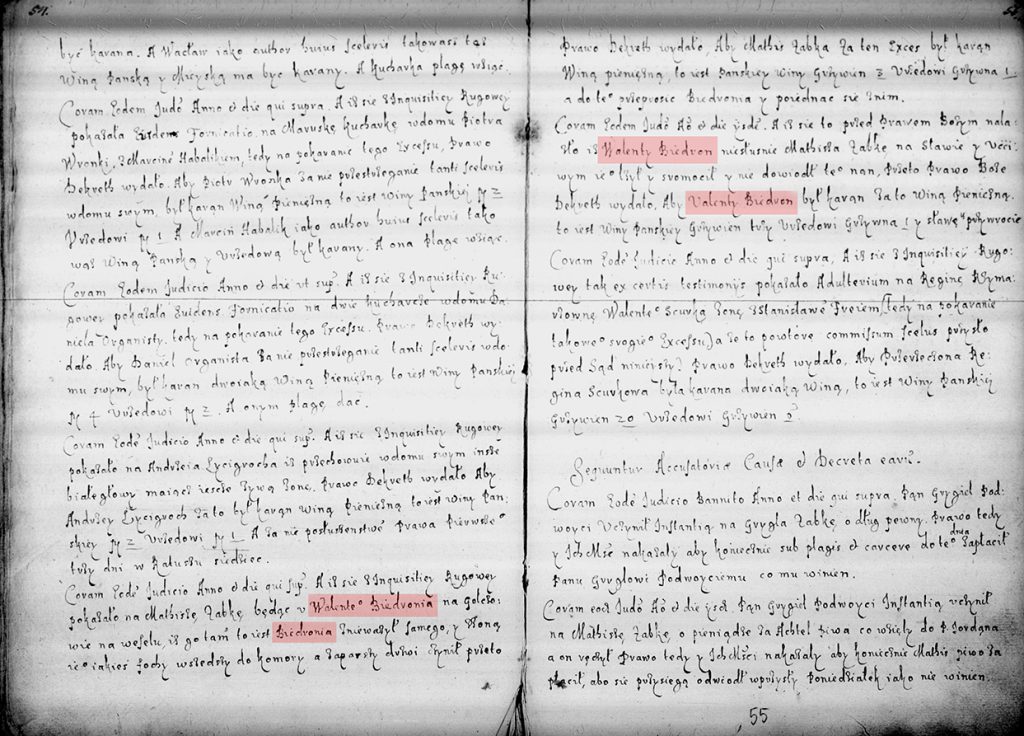 54.
być karana. A Wacław iako author huius sceleris takowasz też
Winą Pańską y Mieyską ma być karany. A Kucharka plagę wziąć.
Coram Eodem Judō Anno & die qui supra. A iż się z Inquisitiey Rugowey
pokazała Evidens Fornicatio na Maruskę Kucharkę w domu Piotra
Wronki, z Marcinē Habalikiem, tedy na pokaranie tego Excessu, Prawo
Dekreth wydało. Aby Piotr Wronka za nie przestrzeganie tanti sceleris
w domu swym, był karan Winą Pieniężną to iest winy Pańskiej gr 2
Urzedowi gr 1 A Marcin Habalik iako author huius sceleris tako
waż Winą Pańską y Urzedową był karany. A ona plagę wziąć.
Coram Eodem Judicio Anno & die ut sup. A iż się z Inquisitiey Ru-
gowey pokazała Evidens Fornicatio na dwie Kucharcze w domu Da-
niela Organisty. tedy na pokaranie tego Excessu. Prawo Dekreth wy-
dało. Aby Daniel Organista za nie przestrzeganie tanti sceleris w do-
mu swym, był karan dwoiaką Winą Pieniężną to iest Winy Pańskiej
gr 4 Urzedowi gr 2. A onym plagę dać.
Coram Eodē Judicio Anno & die qui sup. A iż się z Inquisitiey Rugowey
pokazało na Andrzeia Lycigrocha iż przechowuie w domu swym insze
białegłowy maiąc ieszcze żywą żonę. Prawo Dekreth wydało Aby
Andrzey Lycigroch za to był karan winą Pieniężną to iest winy Pań-
skiey gr 2 Urzedowi gr 1 A za nie posłuszenstwo Prawa Pierwsze°
trzy dni w Ratuszu siedziec.
Coram Eodē Judicio Anno & die qui sup. A iż się z Inquisitiey Rugowey
pokazało na Mathisza Żabkę będąc u Walente° Biedronia na
wie na weselu, iż go tam to iest Biedronia znieważył samego, y żoną
ie° iakieś fochy wszedszy do komory a zaparszy drzwi czynił przeto
Prawo Dekreth wydało, Aby Mathis Żabka za ten Exces był karan
Winą pieniężną, to iest Pańskiey winy Grzywien 2 Urzedowi Grzywna 1
a do te° przeprosic Biedronia y poiednac się z nim.
Coram Eodem Judō Aō & die ijsdē. A iż się to przed Prawem Bożym nala-
zło iż Walenty Biedron niesłusnie Mathisza Żabkę na sławie y Ucci-
wym ie° lżył y sromocił y nie dowiodł te° nań, Przeto Prawo Boże
Dekreth wydało, Aby Valenty Biedron był karan za to Winą Pieniężną.
to iest Winy Pańskiey Grzywien trzy Urzedowi Grzywna 1 y sławę przywrocic
Coram Eodē Judicio Anno & die qui supra, A iż się z Inquisitiey Rugo-
wey tak ex certis testimonijs pokazało Adulterium na Reginę Rzyma-
rzownę Walente° Scurka żonę z Stanisławē Freiem, Tedy na pokaranie
takowe° srogie° Excessu) a że to powtore commissum scelus przyszło
przed Sąd ninieyszy) Prawo Dekreth wydało. Aby Przerzeczona Re-
gina Scurkowa była karana dwoiaką Winą, to iest Winy Pańskiej
Grzywien 20 Urzedowi Grzywien
Sequuntur Accusatoriæ Causæ & Decreta earū.
Coram Eodē Judicio Bannito Anno et die qui supra. Pan Grygiel Pod-
woyci Uczynił Instantią na Grygla Żabkę o dług pewny. Prawo tedy
y Ich Mśc nakazały aby koniecznie sub plagis & carcere do te° dnia zapłacił
Panu Gryglowi Podwoyciemu co mu winien.
Coram eod Judō Aō & die ijsdē. Pan Grygiel Podwoyci Instantią uczynił
na Mathisza Żabkę o pieniądze za Achtel piwa co wzięły do P. Jordana
a on ręczył Prawo tedy y Ich Mści nakazały aby koniecznie Mathis piwo za
płacił, abo się przysięgą odwiodł w przyszły Poniedziałek iako nie winien.
55